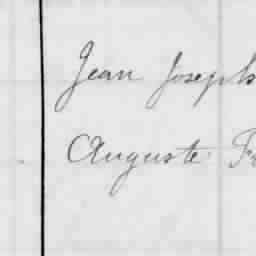 Jean Joseph
Auguste